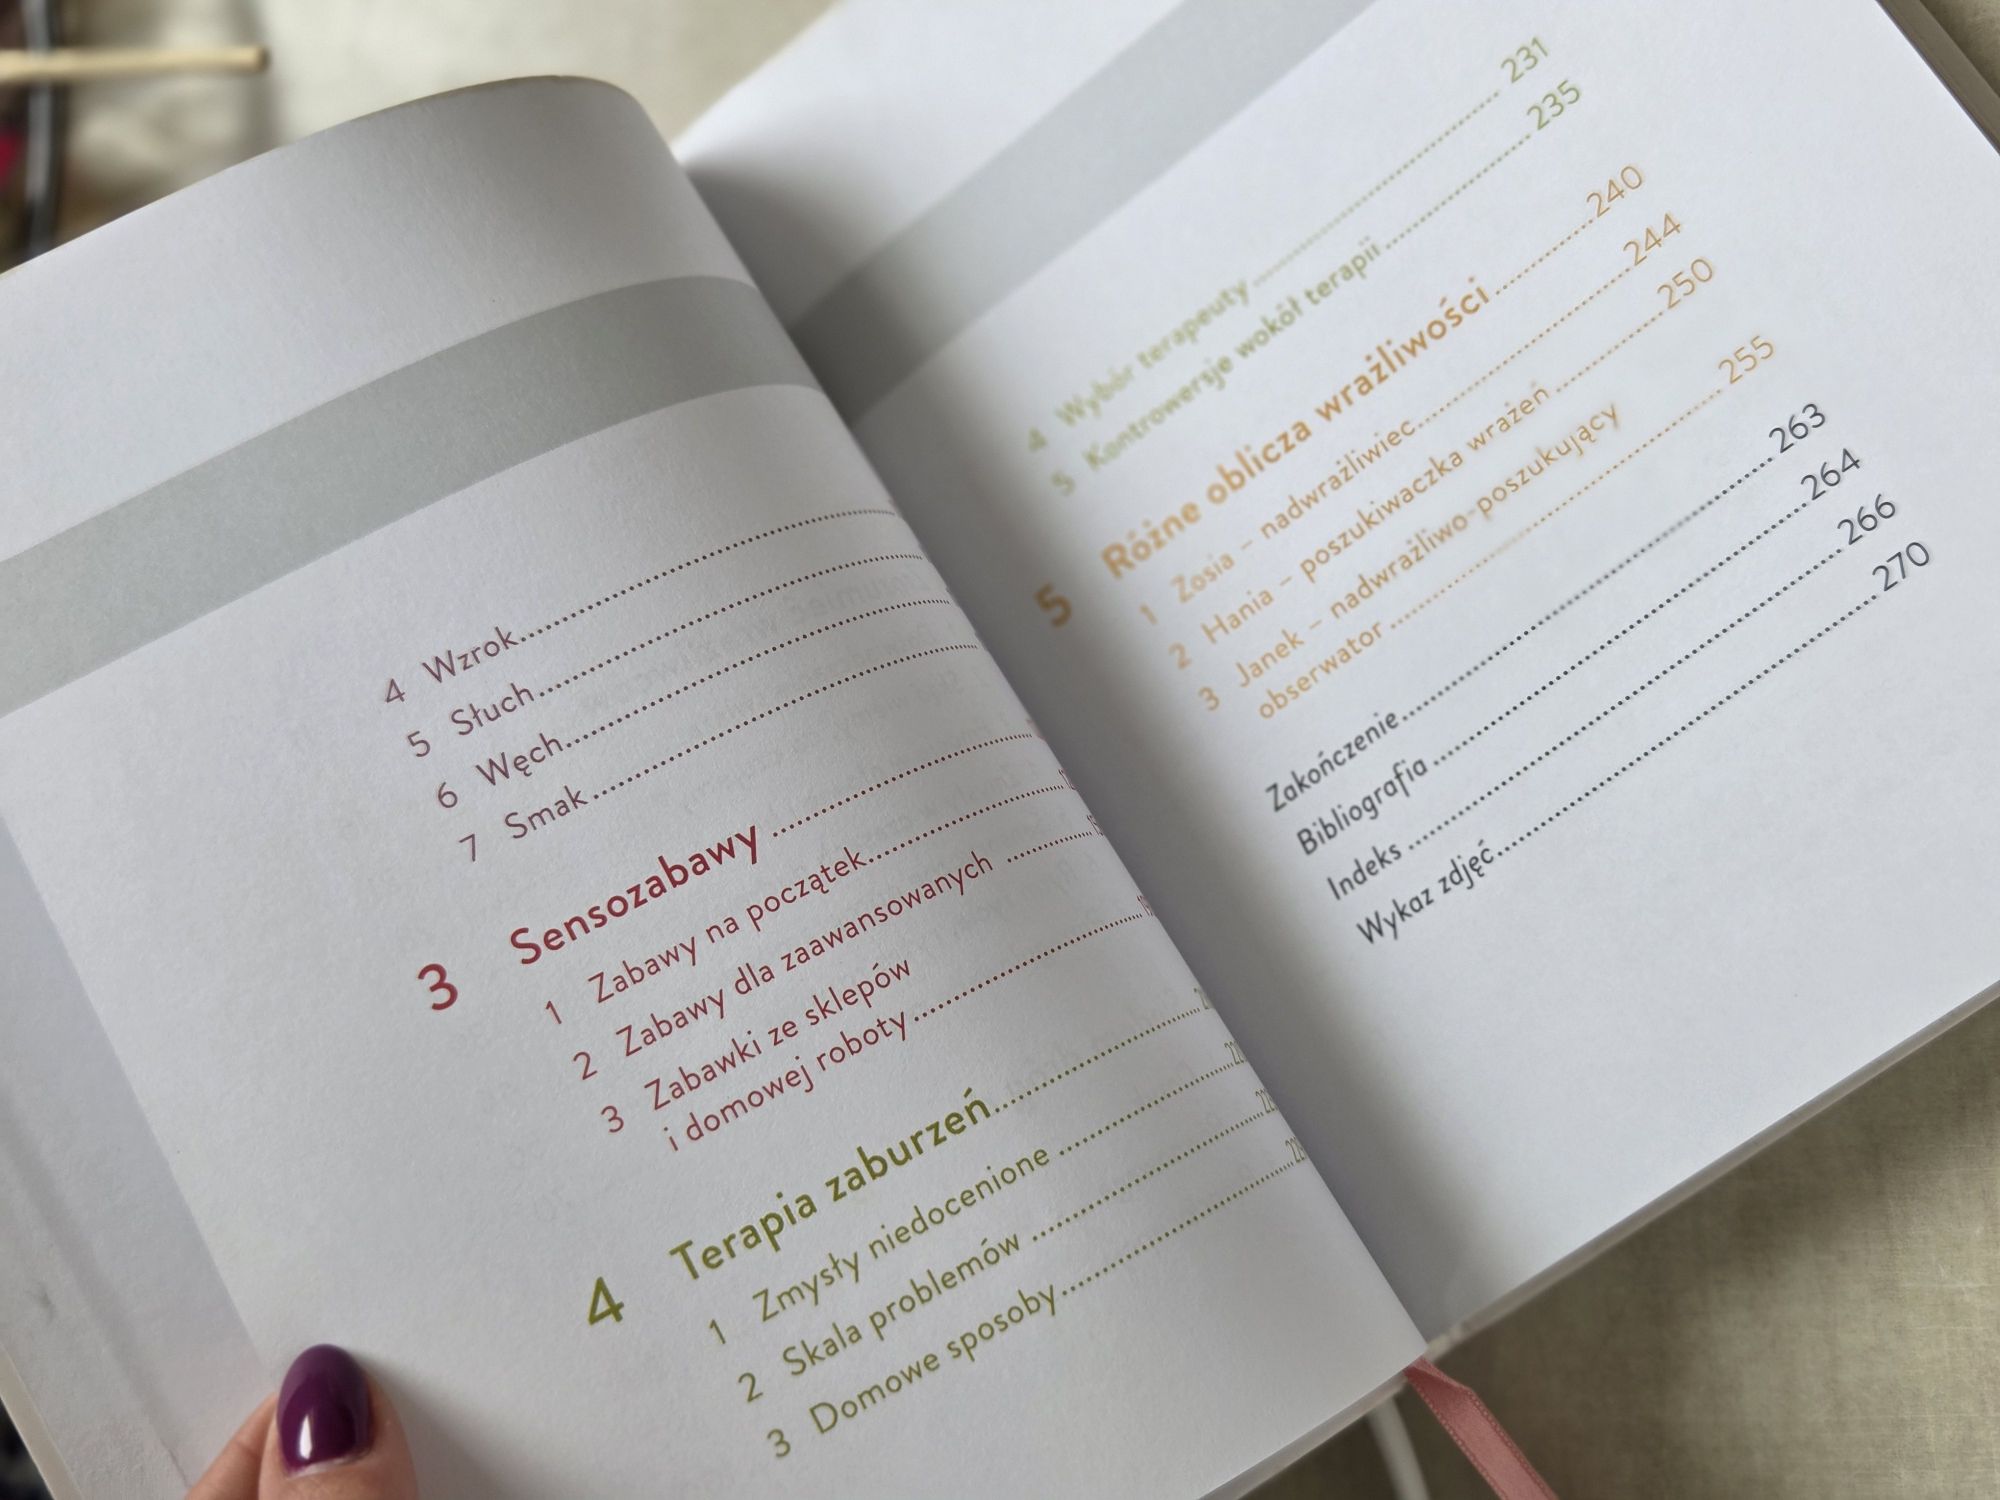 4 Wzrok
5 Słuch
6 Węch
7 Smak
3 Sensozabawy
1 Zabawy na początek
2 Zabawy dla zaawansowanych
3 Zabawki ze sklepów
i domowej roboty
4 Terapia zaburzeń
1 Zmysły niedocenione
2 Skala problemów
3 Domowe sposoby
4 Wybór terapeuty 231
5 Kontrowersje wokół terapii 235
5 Różne oblicza wrażliwości 240
1 Zosia – nadwrażliwiec 244
2 Hania – poszukiwaczka wrażeń 250
3 Janek – nadwrażliwo-poszukujący
obserwator 255
Zakończenie 263
Bibliografia 264
Indeks 266
Wykaz zdjęć 270